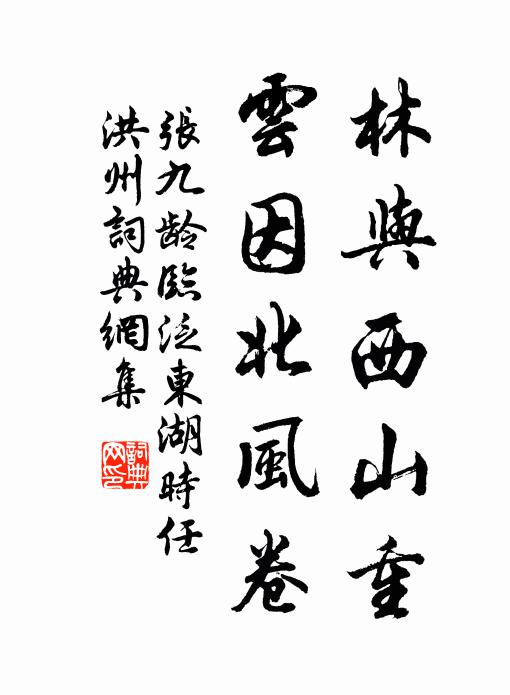 林與西山重
雲因北風卷
張九龄臨泛東湖時任
洪州詞典網集
詞典网印